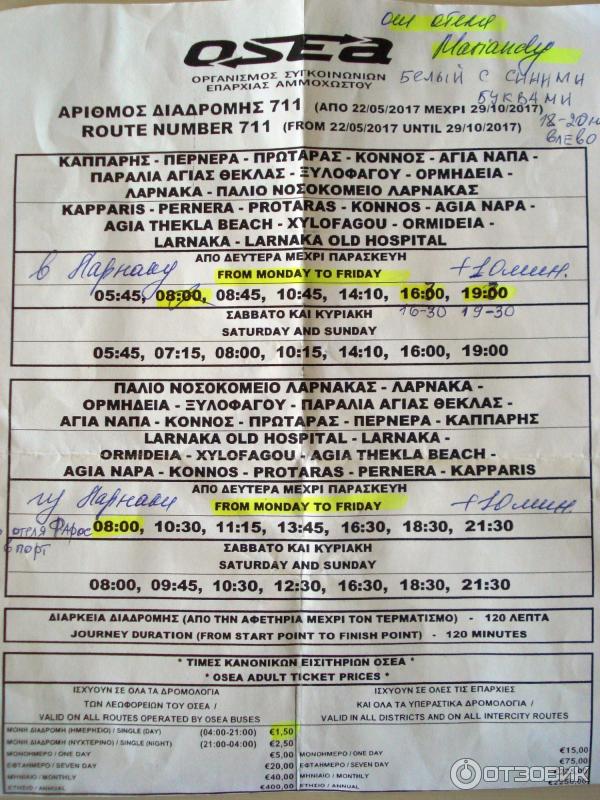 от отеля
Mariandy
OSEA
ΟΡΓΑΝΙΣΜΟΣ ΣΥΓΚΟΙΝΩΝΙΩΝ
ΕΠΑΡΧΙΑΣ ΑΜΜΟΧΩΣΤΟΥ
БЕЛЫЙ С СИНИМИ
БУКВАМИ
ΑΡΙΘΜΟΣ ΔΙΑΔΡΟΜΗΣ 711 (ΑΠΟ 22/05/2017 ΜΕΧΡΙ 29/10/2017)
ROUTE NUMBER 711 (FROM 22/05/2017 UNTIL 29/10/2017)
ВЛЕВО
ΚΑΠΠΑΡΗΣ - ΠΕΡΝΕΡΑ - ΠΡΩΤΑΡΑΣ - ΚΟΝΝΟΣ - ΑΓΙΑ ΝΑΠΑ -
ΠΑΡΑΛΙΑ ΑΓΙΑΣ ΘΕΚΛΑΣ - ΞΥΛΟΦΑΓΟΥ - ΟΡΜΗΔΕΙΑ -
ΛΑΡΝΑΚΑ - ΠΑΛΙΟ ΝΟΣΟΚΟΜΕΙΟ ΛΑΡΝΑΚΑΣ
KAPPARIS - PERNERA - PROTARAS - KONNOS - AGIA NAPA -
AGIA THEKLA BEACH - XYLOFAGOU - ORMIDEIA -
LARNAKA - LARNAKA OLD HOSPITAL
ΑΠΟ ΔΕΥΤΕΡΑ ΜΕΧΡΙ ΠΑΡΑΣΚΕΥΗ
в Ларнаку FROM MONDAY TO FRIDAY +10мин.
05:45, 08:00, 08:45, 10:45, 14:10, 16:30, 19:30
ΣΑΒΒΑΤΟ ΚΑΙ ΚΥΡΙΑΚΗ 16-30 19-30
SATURDAY AND SUNDAY
05:45, 07:15, 08:00, 10:15, 14:10, 16:00, 19:00
ΠΑΛΙΟ ΝΟΣΟΚΟΜΕΙΟ ΛΑΡΝΑΚΑΣ - ΛΑΡΝΑΚΑ -
ΟΡΜΗΔΕΙΑ - ΞΥΛΟΦΑΓΟΥ - ΠΑΡΑΛΙΑ ΑΓΙΑΣ ΘΕΚΛΑΣ -
ΑΓΙΑ ΝΑΠΑ - ΚΟΝΝΟΣ - ΠΡΩΤΑΡΑΣ - ΠΕΡΝΕΡΑ - ΚΑΠΠΑΡΗΣ
LARNAKA OLD HOSPITAL - LARNAKA -
ORMIDEIA - XYLOFAGOU - AGIA THEKLA BEACH -
AGIA NAPA - KONNOS - PROTARAS - PERNERA - KAPPARIS
ΑΠΟ ΔΕΥΤΕΡΑ ΜΕΧΡΙ ΠΑΡΑΣΚΕΥΗ
из Ларнаки FROM MONDAY TO FRIDAY +10мин.
08:00, 10:30, 11:15, 13:45, 16:30, 18:30, 21:30
отеля Фарос
в порт
ΣΑΒΒΑΤΟ ΚΑΙ ΚΥΡΙΑΚΗ
SATURDAY AND SUNDAY
08:00, 09:45, 10:30, 12:30, 16:30, 18:30, 21:30
ΔΙΑΡΚΕΙΑ ΔΙΑΔΡΟΜΗΣ (ΑΠΟ ΤΗΝ ΑΦΕΤΗΡΙΑ ΜΕΧΡΙ ΤΟΝ ΤΕΡΜΑΤΙΣΜΟ) - 120 ΛΕΠΤΑ
JOURNEY DURATION (FROM START POINT TO FINISH POINT) - 120 MINUTES
* ΤΙΜΕΣ ΚΑΝΟΝΙΚΩΝ ΕΙΣΙΤΗΡΙΩΝ OSEA *
* OSEA ADULT TICKET PRICES *
ΙΣΧΥΟΥΝ ΣΕ ΟΛΑ ΤΑ ΔΡΟΜΟΛΟΓΙΑ
ΤΩΝ ΛΕΩΦΟΡΕΙΩΝ ΤΟΥ OSEA /
VALID ON ALL ROUTES OPERATED BY OSEA BUSES
ΙΣΧΥΟΥΝ ΣΕ ΟΛΕΣ ΤΙΣ ΕΠΑΡΧΙΕΣ
ΚΑΙ ΟΛΑ ΤΑ ΥΠΕΡΑΣΤΙΚΑ ΔΡΟΜΟΛΟΓΙΑ /
VALID IN ALL DISTRICTS AND ON ALL INTERCITY ROUTES
ΜΟΝΗ ΔΙΑΔΡΟΜΗ (ΗΜΕΡΗΣΙΟ) / SINGLE (DAY) (04:00-21:00) €1,50
ΜΟΝΗ ΔΙΑΔΡΟΜΗ (ΝΥΧΤΕΡΙΝΟ) / SINGLE (NIGHT) (21:00-04:00) €2,50
ΜΟΝΟΗΜΕΡΟ / ONE DAY €5,00
ΕΦΤΑΗΜΕΡΟ / SEVEN DAY €20,00
ΜΗΝΙΑΙΟ / MONTHLY €40,00
ΕΤΗΣΙΟ / ANNUAL €400,00
ΜΟΝΟΗΜΕΡΟ / ONE DAY €15,00
ΕΦΤΑΗΜΕΡΟ / SEVEN DAY
ΜΗΝΙΑΙΟ / MONTHLY
ΕΤΗΣΙΟ / ANNUAL
ОТЗОВИК